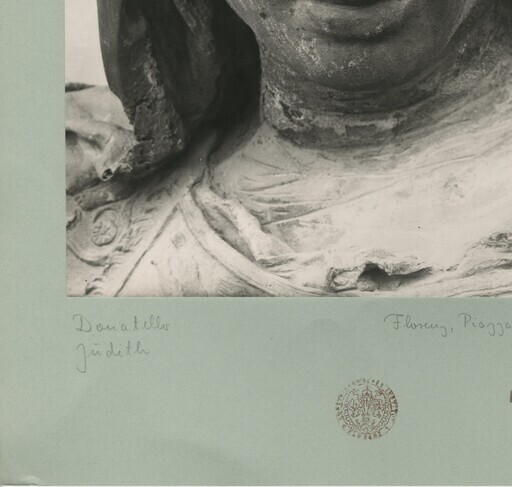 Donatello
Judith
Florenz, Piazza